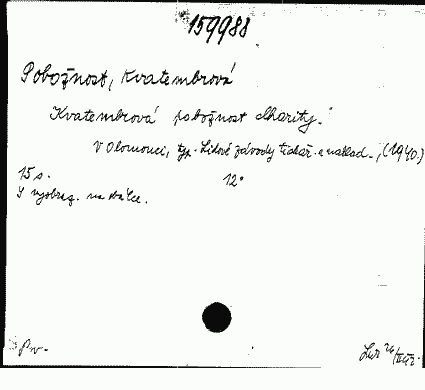 159988
Pobožnost, Kvatembrová
Kvatembrová pobožnost charity.
V Olomouci, typ. Lidové závody tiskař. a naklad., (1940.)
15 s. 12°
S vyobraz. na obálce.
Prv.